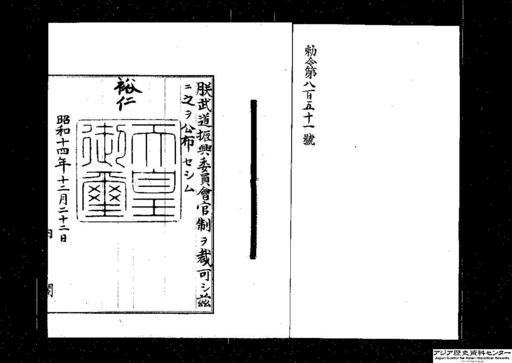 勅令第八百五十一號
朕武道振興委員會官制ヲ裁可シ茲
ニ之ヲ公布セシム
裕仁
天皇
御璽
昭和十四年十二月二十二日
内 閣
アジア歴史資料センター
Japan Center for Asian Historical Records